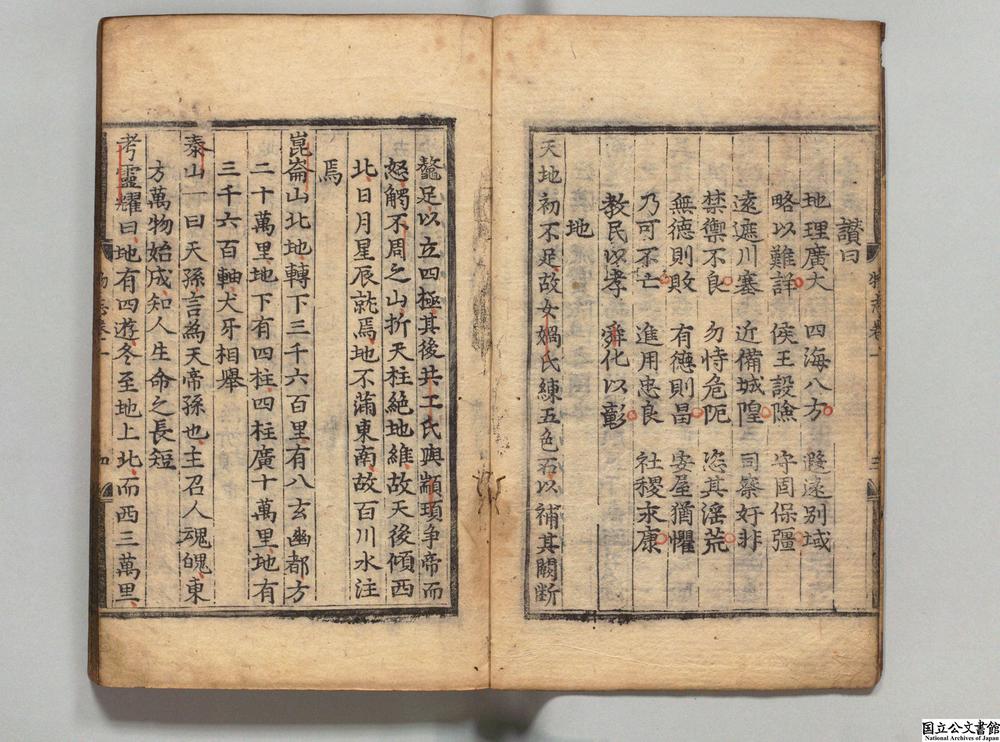 讃曰
地理廣大 四海八方 遐遠别域
略以難詳 侯王設險 守固保疆
遠遮川塞 近備城隍 司察奸非
禁禦不良 勿恃危阨 恣其淫荒
無德則敗 有德則昌 安屋猶懼
乃可不亡 進用忠良 社稷永康
教民以孝 舜化以彰
地
天地初不足故女媧氏練五色石以補其闕斷
鼇足以立四極其後共工氏與顓頊争帝而
怒觸不周之山折天柱絶地維故天後傾西
北日月星辰就焉地不蒲東南故百川水注
焉
崑崙山北地轉下三千六百里有八玄幽都方
二十萬里地下有四柱四柱廣十萬里地有
三千六百軸犬牙相舉
泰山一曰天孫言為天帝孫也主召人魂魄東
方萬物始成知人生命之長短
考靈耀曰地有四遊冬至地上北而西三萬里
物志卷一
三
物志卷一
四
国立公文書館
National Archives of Japan